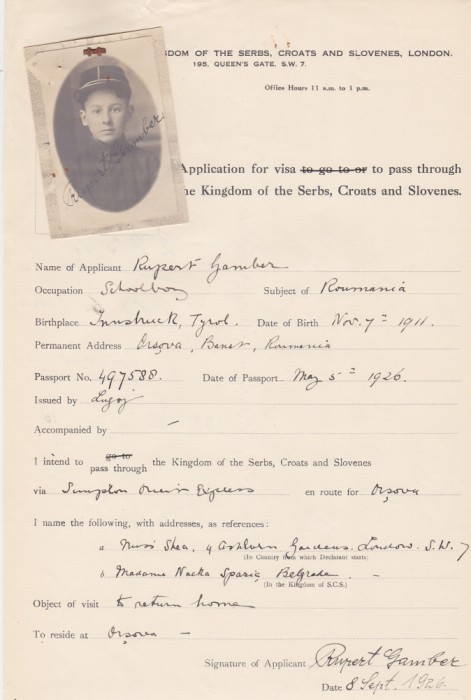 DOM OF THE SERBS, CROATS AND SLOVENES, LONDON.
195, QUEEN'S GATE. S.W. 7.
Office Hours 11 a.m. to 1 p.m.
Rupert Gamber
Application for visa to go to or to pass through
he Kingdom of the Serbs, Croats and Slovenes.
Name of Applicant Rupert Gamber
Occupation Schoolboy Subject of Roumania
Birthplace Innsbruck, Tyrol. Date of Birth Nov. 7th 1911.
Permanent Address Orşova, Banat, Roumania
Passport No. 497588. Date of Passport May 5th 1926.
Issued by Lugoj
Accompanied by —
I intend to go to pass through the Kingdom of the Serbs, Croats and Slovenes
via Simplon Orient Express en route for Orşova
I name the following, with addresses, as references:
a Miss Shea, 4 Ashburn Gardens. London. S.W. 7
(In Country from which Declarant starts;
b Madame Nacka Belgrade. —
(In the Kingdom of S.C.S.)
Object of visit to return home
To reside at Orşova —
Signature of Applicant Rupert Gamber
Date 8 Sept. 1926.